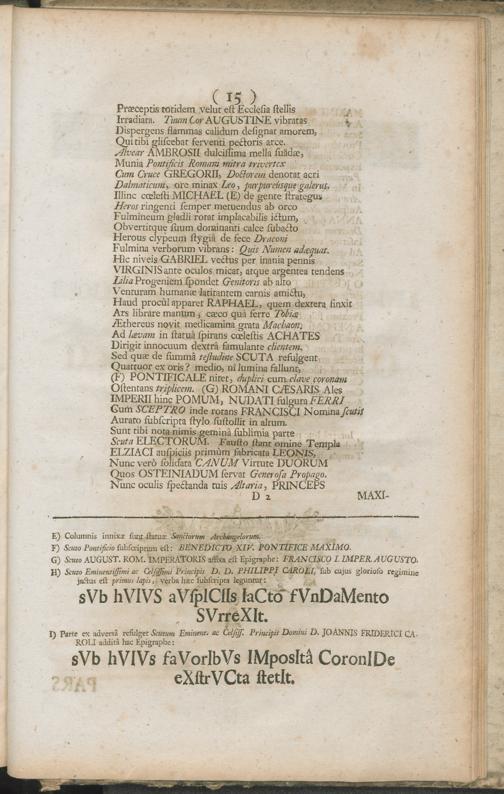 ( 15 )
Præceptis totidem velut est Ecclesia stellis
Irradiata. Tuum Cor AUGUSTINE vibratas
Dispergens flammas calidum designat amorem,
Qui tibi gliscebat ferventi pectoris arce.
Alvear AMBROSII dulcissima mella suädæ,
Munia Pontificis Romani mitra trivertex
Cum Cruce GREGORII, Doctorem denotat acri
Dalmaticum, ore minax Leo, purpureusque galerus.
Illinc cœlesti MICHAEL (E) de gente strategus
Heros ringenti semper metuendus ab orco
Fulmineum gladii rotat implacabilis ictum,
Obvertitque suum dominanti calce subacto
Herous clypeum stygiâ de fece Draconi
Fulmina verborum vibrans: Quis Numen adæquat.
Hic niveis GABRIEL vectus per inania pennis
VIRGINIS ante oculos micat, atque argentea tendens
Lilia Progeniem spondet Genitoris ab alto
Venturam humanæ latitantem carnis amictu,
Haud procùl apparet RAPHAEL, quem dextera finxit
Ars librare mantum, cæco quâ ferre Tobiæ
Æthereus novit medicamina grata Machaon;
Ad lævam in statuâ spirans cœlestis ACHATES
Dirigit innocuum dextrâ famulante clientem.
Sed quæ de summâ testudine SCUTA refulgent
Quattuor ex oris? medio, ni lumina fallunt,
(F) PONTIFICALE nitet, duplici cum clave coronam
Ostentans triplicem. (G) ROMANI CÆSARIS Ales
IMPERII hinc POMUM, NUDATI fulgura FERRI
Cum SCEPTRO inde rotans FRANCISCI Nomina scutis
Aurato subscripta stylo sustollit in altum.
Sunt tibi nota nimis geminâ sublimia parte
Scuta ELECTORUM. Fausto stant omine Templa
ELZIACI auspiciis primùm fabricata LEONIS,
Nunc verò solidata CANUM Virtute DUORUM
Quos OSTEINIADUM servat Generosa Propago.
Nunc oculis spectanda tuis Altaria, PRINCEPS
D 2 MAXI-
E) Columnis innixæ sunt statuæ Sanctorum Archangelorum.
F) Scuto Pontificio subscriptum est: BENEDICTO XIV. PONTIFICE MAXIMO.
G) Scuto AUGUST. ROM. IMPERATORIS affixa est Epigraphe: FRANCISCO I. IMPER. AUGUSTO.
H) Scuto Eminentissimi ac Celsissimi Principis D. D. PHILIPPI CAROLI, sub cujus glorioso regimine
jactus est primus lapis, verba hæc subscripta leguntur:
sVb hVIVS aVspICIIs IaCto fVnDaMento
SVrreXIt.
I) Parte ex adversâ refulget Scutum Eminent. ac Celsiss. Principis Domini D. JOANNIS FRIDERICI CA-
ROLI additâ hac Epigraphe:
sVb hVIVs faVorIbVs IMposItâ CoronIDe
eXstrVCta stetIt.